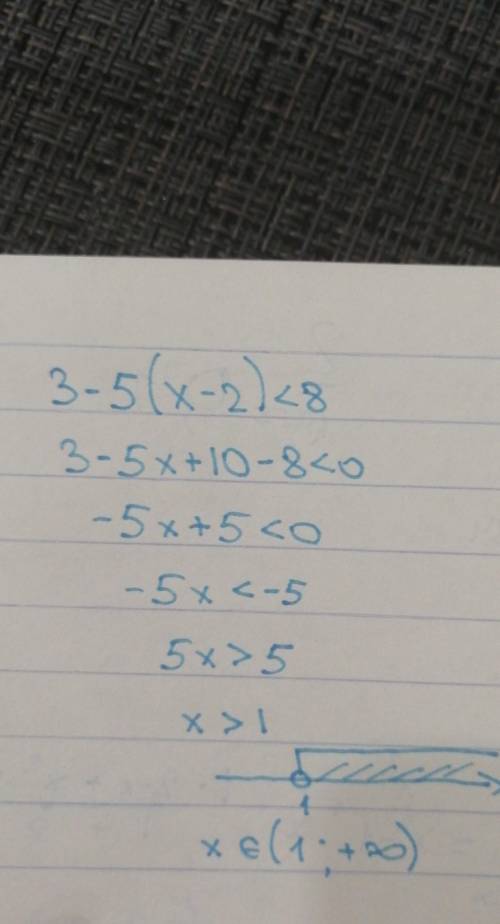 3-5(x-2)<8
3-5x+10-8<0
-5x+5<0
-5x<-5
5x>5
x>1
1
x∈(1;+∞)